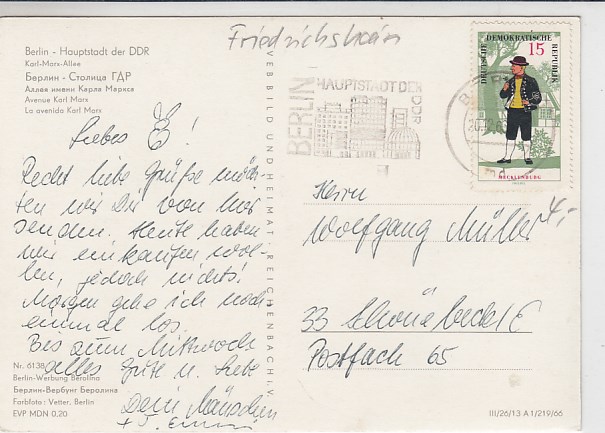 Friedrichshain
Berlin - Hauptstadt der DDR
Karl-Marx-Allee
Берлин - Столица ГДР
Аллея имени Карла Маркса
Avenue Karl Marx
La avenida Karl Marx
Liebes E!
Recht liebe Grüße möch-
ten wir Dir von hier
senden. Heute haben
wir einkaufen wol-
len, jedoch nichts!
Morgen gehe ich noch
einmal los.
Bis zum Mittwoch
alles Gute u. Liebe
Dein
Nr. 6138
Berlin-Werbung Berolina
Берлин-Вербунг Беролина
Farbfoto: Vetter, Berlin
EVP MDN 0,20
VEB BILD UND HEIMAT · REICHENBACH I. V.
BERLIN
HAUPTSTADT DER
DDR
DEUTSCHE DEMOKRATISCHE REPUBLIK
15
MECKLENBURG
4,-
Herrn
Wolfgang Müller
33 Schönebeck/E
Postfach 65
III/26/13 A 1/219/66